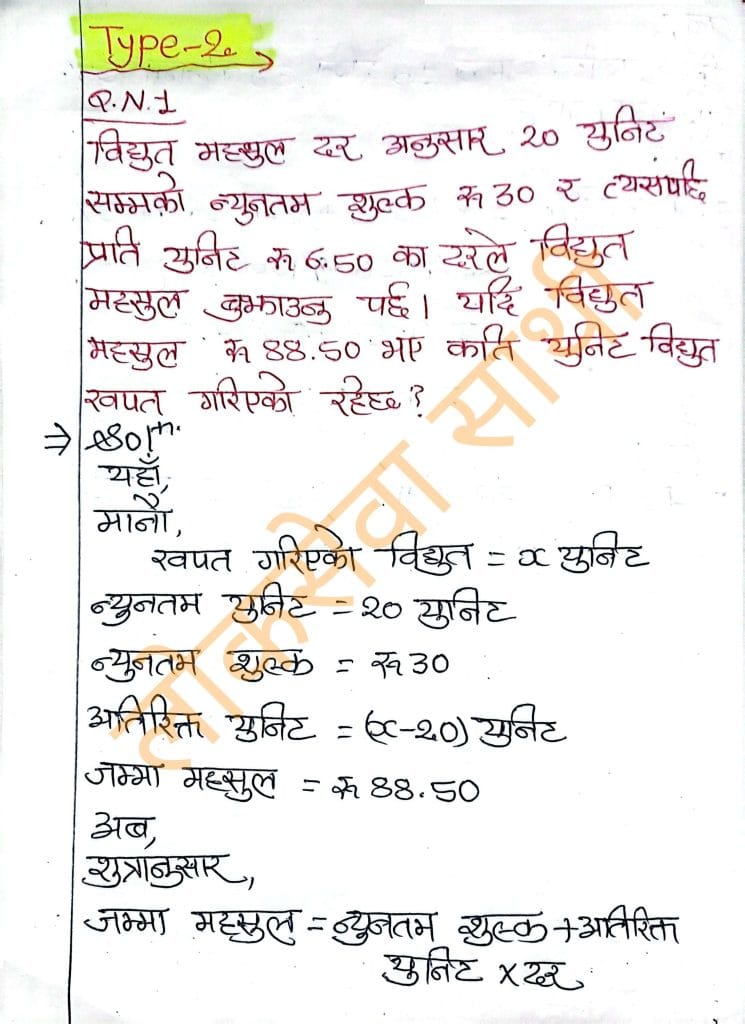 Type-2.
Q.N.1
विद्युत महसुल दर अनुसार 20 युनिट
सम्मको न्युनतम शुल्क रू 30 र त्यसपछि
प्राति युनिट रू 6.50 का दरले विद्युत
महसुल बुझाउनु पर्छ। यदि विद्युत
महसुल रू 88.50 भए कति युनिट विद्युत
खपत गरिएको रहेछ?
⇒ Solⁿ.
यहाँ,
मानौ,
खपत गरिएको विद्युत = x युनिट
न्युनतम युनिट = 20 युनिट
न्युनतम शुल्क = रू 30
अतिरिक्त युनिट = (x-20) युनिट
जम्मा महसुल = रू 88.50
अब,
शुत्रानुसार,
जम्मा महसुल = न्युनतम शुल्क + अतिरिक्त
युनिट × दर
लोकसेवा साथी